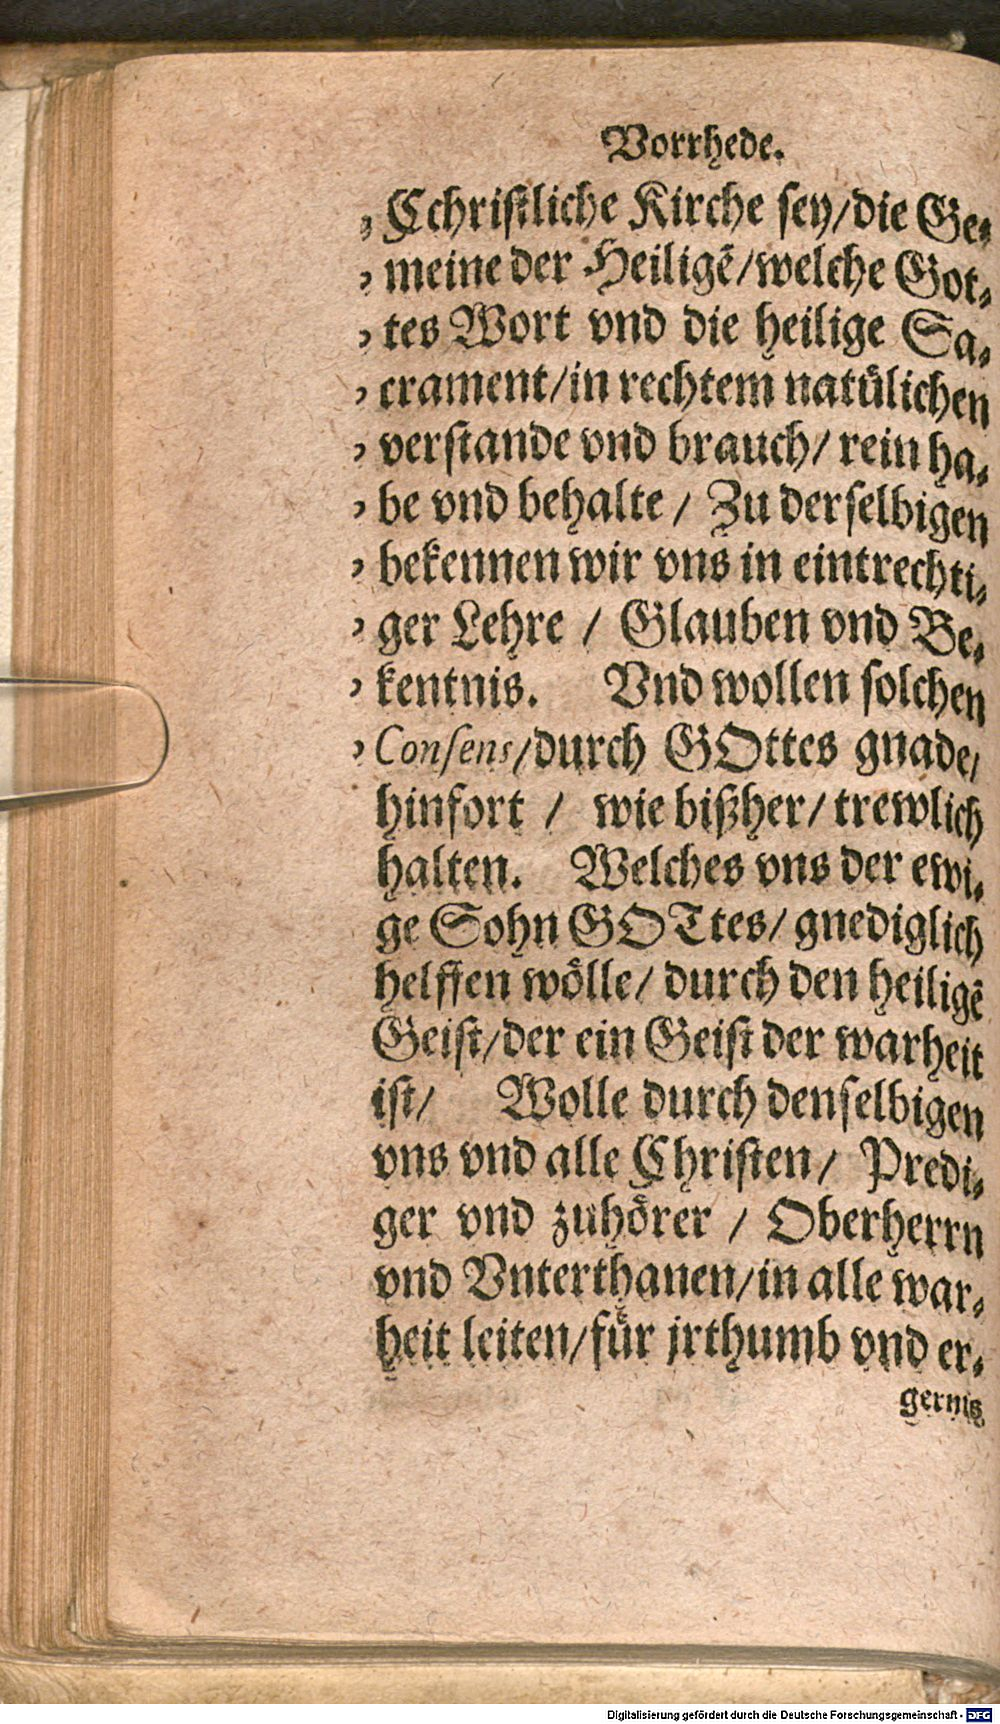 Vorrhede.
„ Cchriſtliche Kirche ſey/die Ge⸗
, meine der Heiligẽ/welche Got⸗
, tes Wort vnd die heilige Sa⸗
, crament/in rechtem natůlichen
, verſtande vnd brauch/ rein ha⸗
, be vnd behalte / Zu derſelbigen
, bekennen wir vns in eintrechti⸗
, ger Lehre / Glauben vnd Be⸗
, kentnis. Vnd wollen ſolchen
, Conſens/durch GOttes gnade/
hinfort / wie bißher/ trewlich
halten. Welches vns der ewi⸗
ge Sohn GOTtes/ gnediglich
helffen wölle/ durch den heiligẽ
Geiſt/der ein Geiſt der warheit
iſt/ Wolle durch denſelbigen
vns vnd alle Chriſten/ Predi⸗
ger vnd zuhörer / Oberherrn
vnd Vnterthanen/in alle war⸗
heit leiten/fůr jrthumb vnd er⸗
gernis
Digitalisierung gefördert durch die Deutsche Forschungsgemeinschaft - DFG